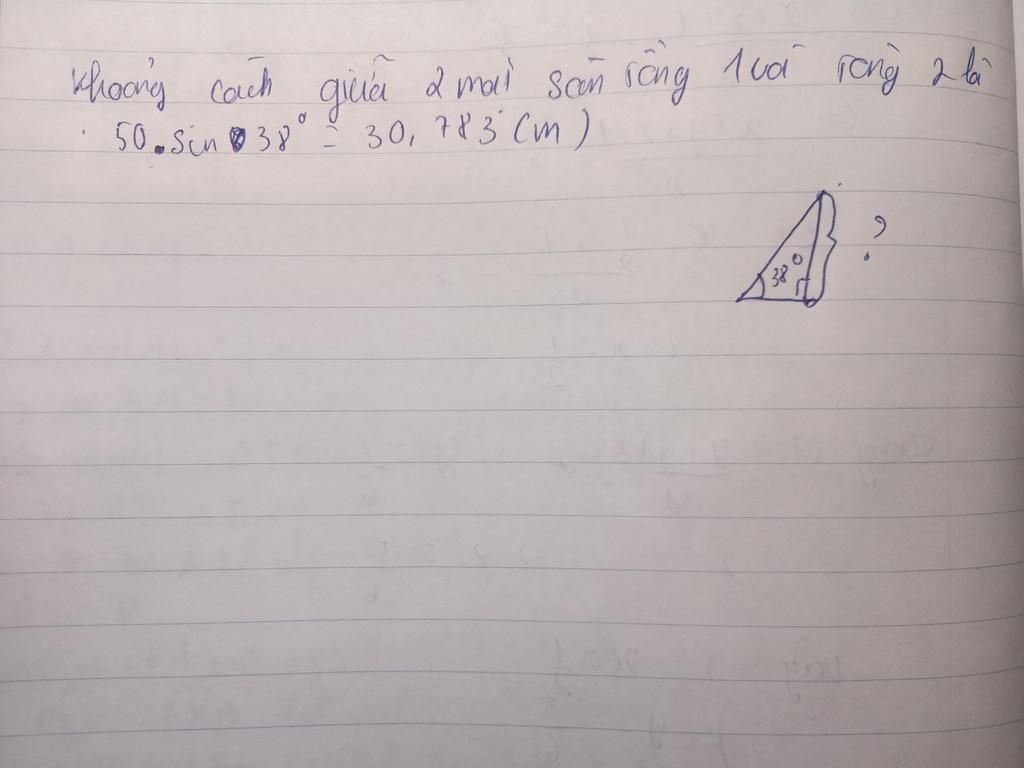 Khoảng cách giữa 2 mặt sàn tầng 1 và tầng 2 là
50.sin 38° = 30,783 (m)
38° ?